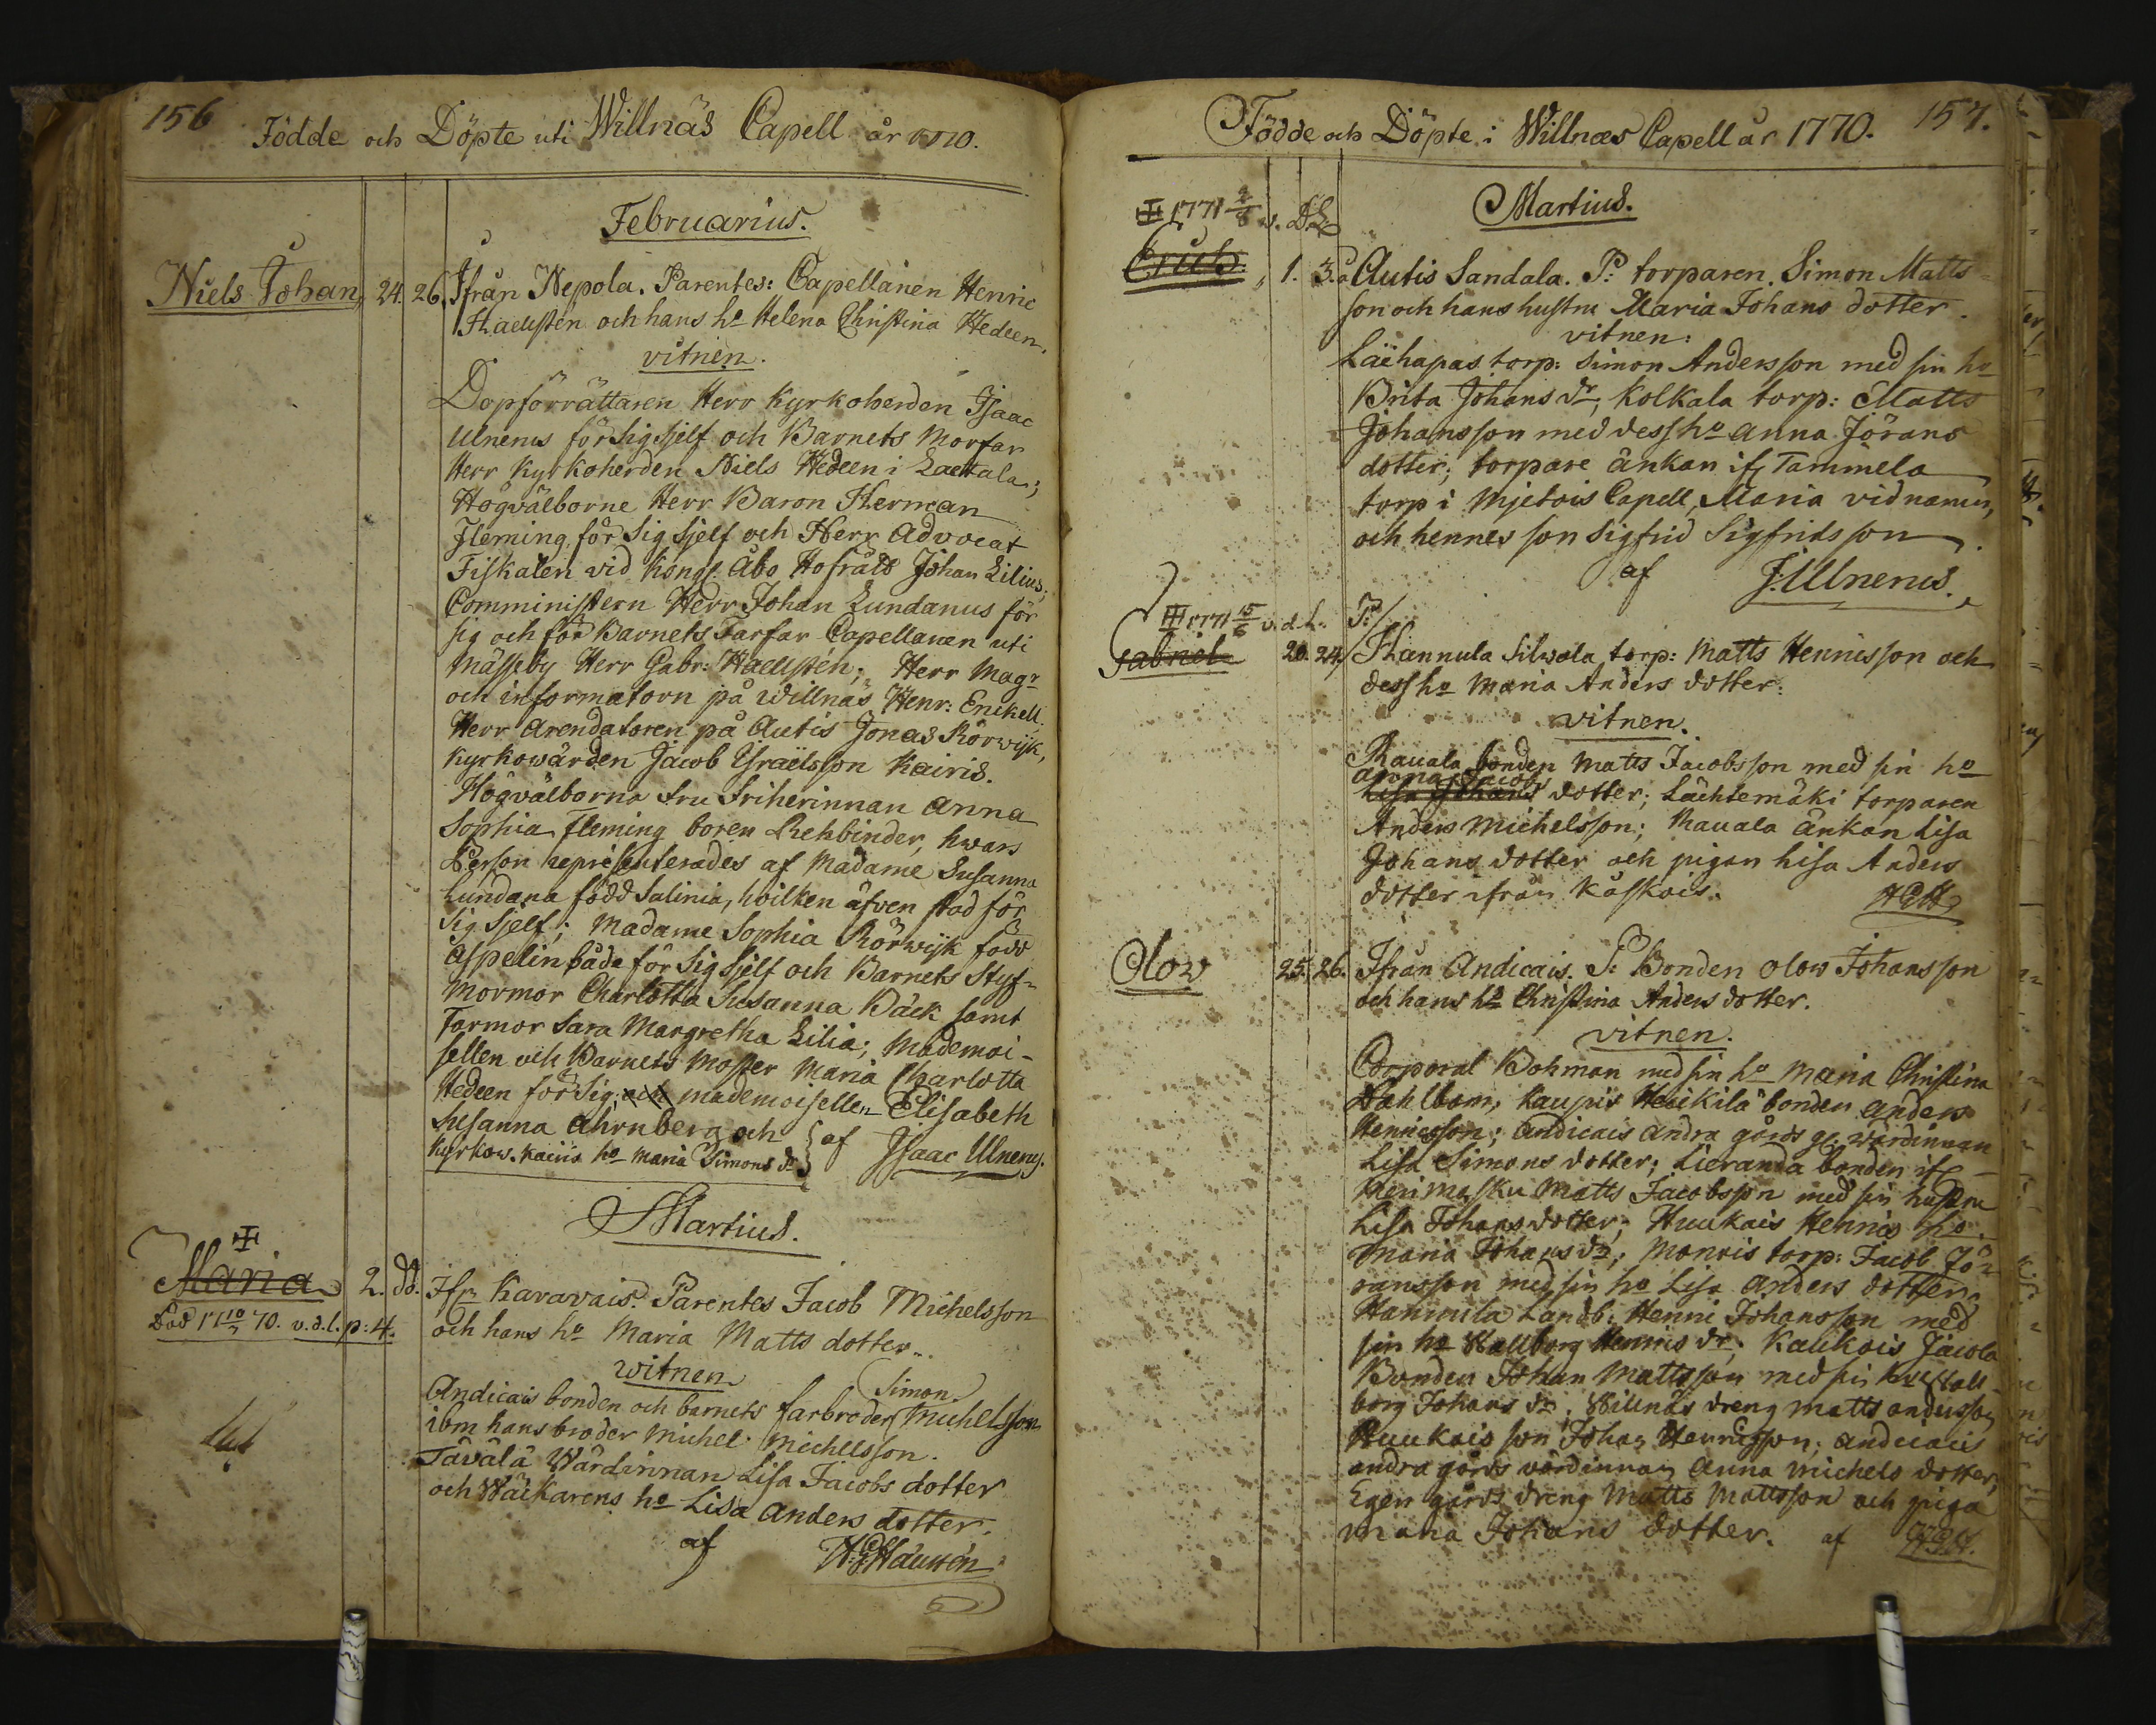 156
Födde och Döpte uti Willnäs Capell år 1770.
Februarius.
Niels Johan 24. 26. Ifrån Nepola. Parentes: Capellanen Henric
Haellstén och hans ho Helena Christina Hedeen.
vitnen.
Dopförrättaren Herr Kyrkoherden Isaac
Ulnerus för sig sjelf och Barnets Morfar
Herr Kyrkoherden Niels Hedeen i Laettala;
Högvälborne Herr Baron Herman
Fleming för sig sjelf och Herr Advocat
Fiskalen vid Kongl. Åbo Hofrätt Johan Lilius;
Comministern Herr Johan Lundanus för
sig och för Barnets Farfar Capellanen uti
Mässeby Herr Gabr: Haellstén; Herr Magr
och informatorn på Willnäs Henr: Enckell.
Herr Arendatoren på Autis Jonas Rörwijk,
Kyrkowärden Jacob Israëlsson Kairis.
Högvälborna Fru Friherinnan Anna
Sophia Fleming boren Rehbinder, hwars
Person representerades af Madame Susanna
Lundana född Salinia, hvilken äfven stod för
sig sjelf; Madame Sophia Rörwijk född
Aspelin både för sig sjelf och Barnets Styf-
mormor Charlotta Susanna Bäck samt
Farmor Sara Margretha Lilia; Mademoi-
sellen och Barnets Moster Maria Charlotta
Hedeen för sig; och mademoisellen Elisabeth
Susanna Ahrnberg och
Kyrkow. Kairis ho Maria Simons dr } af Isaac Ulnerus.
Martius.
Maria 2. do. Ifr Karavais. Parentes Jacob Michelsson
Död 17 10/3 70. v.d.l. p: 4. och hans ho Maria Matts dotter.
witnen
Simon
Andicais bonden och barnets farbroder Michelsson
ibm hans broder Michel Michelsson.
Tävälä Wärdinnan Lisa Jacobs dotter
och Wäckarens ho Lisa Anders dotter.
af H:G:Haellstén
157.
Födde och Döpte i Willnæs Capell år 1770.
Martius.
1771 2/6 v. d.l.
Erich. 1. 3. a Autis Sandala. P: torparen Simon Matts-
son och hans hustru Maria Johans dotter.
vitnen:
Laëhapas torp: Simon Andersson med sin ho
Brita Johans dr, Kolkala torp: Matts
Johansson med dess ho Anna Jörans
dotter; torpare änkan ifr Tammela
torp i Mjetois Capell, Maria vid namn,
och hennes son Sigfrid Sigfridsson.
af J:Ulnerus.
1771 15/6 v.d.l. P:
Gabriel 20. 24. Hannula Silwola torp: Matts Henricsson och
dess ho Maria Anders dotter.
vitnen.
Rauala bonden Matts Jacobsson med sin ho
Anna Jacobs
Lisa Johans dotter; Lächtemäki torparen
Anders Michelsson; Rauala änkan Lisa
Johans dotter och pigan Lisa Anders
dotter ifrån Käskois.
HGH
Olow 25. 26. Ifrån Andicais. P: Bonden Olow Johansson
och hans ho Christina Anders dotter.
vitnen.
Corporal Bohman med sin ho Maria Christina
Dahlbom; Kaupis Heickilä bonden Anders
Henricsson; Andicais andra gårds gl: wärdinnan
Lisa Simons dotter; Lieranda bonden ifr
Merimasku Matts Jacobsson med sin hustru
Lisa Johans dotter; Huukais Henrics ho
Maria Johans dr; Monois torp: Jacob Jö-
ransson med sin ho Lisa Anders dotter.
Hannula Landb: Henric Johansson med
sin ho Wallborg Henrics dr; Kaukois Jacola
Bonden Johan Mattsson med sin ho Wall-
borg Johans dr. Willnäs dreng Matts Andersson
Huukais son Johan Henricsson; Andicais
andra gårds wärdinnan Anna Michels dotter,
Egen gårds dreng Matts Mattsson och piga
Maria Johans dotter. af H.G.H.